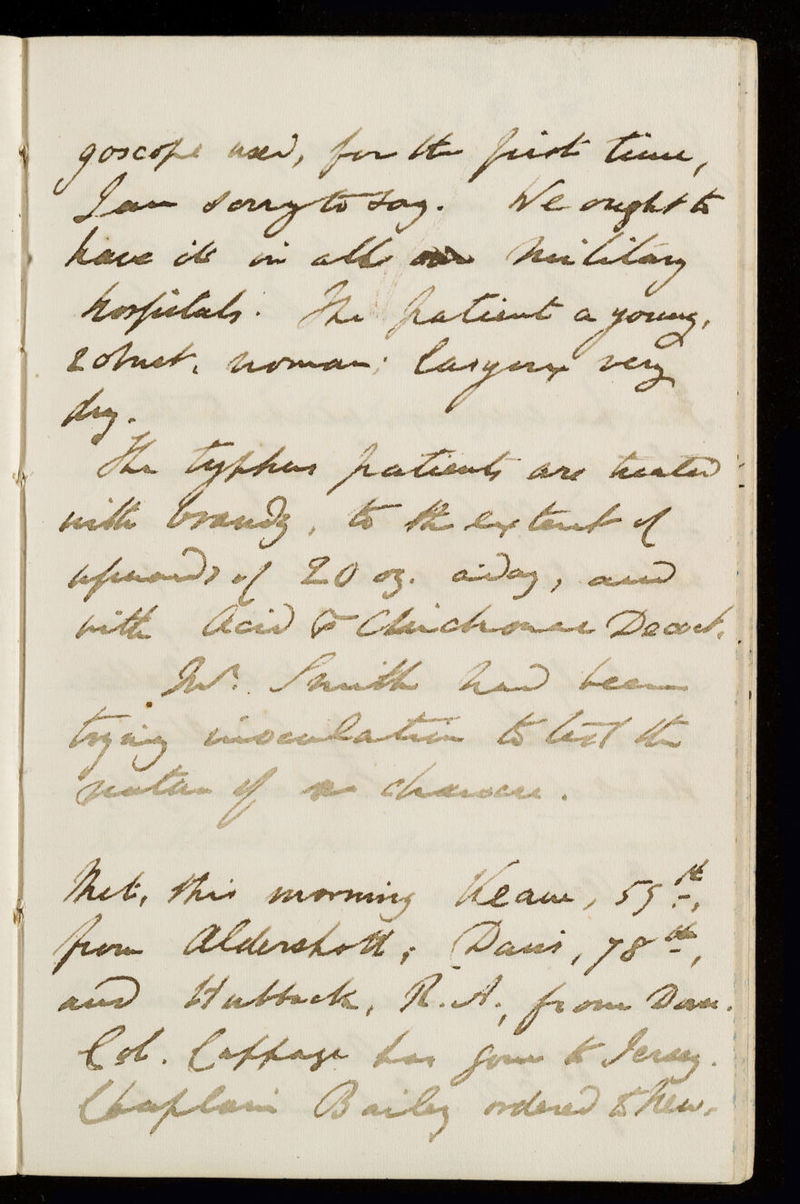 goscope used, for the first time,
I am sorry to say. We ought to
have it in all our Military
hospitals. The patient a young,
robust, woman; larynx very
dry.
The typhus patients are treated
with brandy, to the extent of
upwards of 20 oz. a day, and
with Acid & Cinchonae Decoct.
Mr. Smith had been
trying inoculation to test the
nature of a chancre.
Met, this morning Keane, 55th,
from Aldershott; Davis, 78th,
and Hubback, R.A., from Dover.
Col. Cappage has gone to Jersey.
Chaplain Bailey ordered to New-